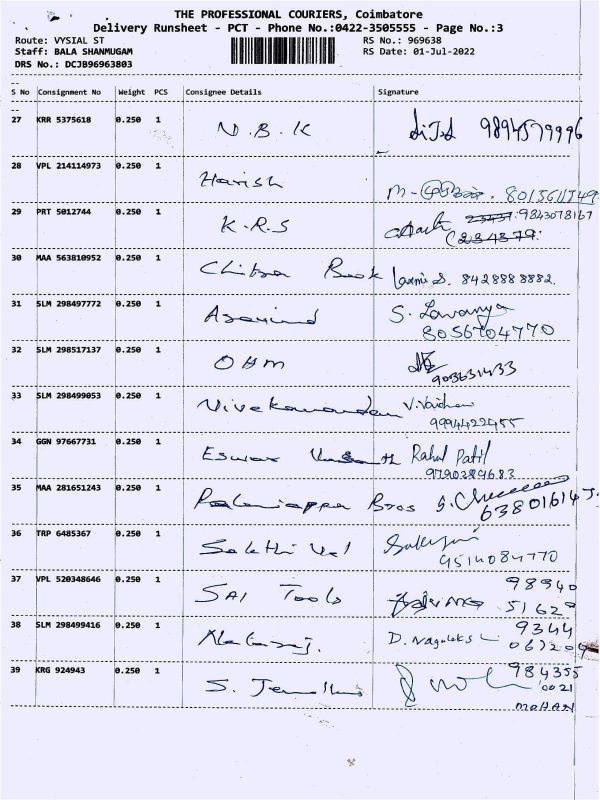 THE PROFESSIONAL COURIERS, Coimbatore
Delivery Runsheet - PCT - Phone No.:0422-3505555 - Page No.:3
Route: VYSIAL ST
RS No.: 969638
Staff: BALA SHANMUGAM
RS Date: 01-Jul-2022
DRS No.: DCJB96963803
S No Consignment No Weight PCS Consignee Details Signature
27 KRR 5375618 0.250 1 N.B.K 9894579996
28 VPL 214114973 0.250 1 Harish
29 PRT 5012744 0.250 1 K.R.S 9843078167
30 MAA 563810952 0.250 1 Chitra Book Laxmi S. 8428888882.
31 SLM 298497772 0.250 1 Aravind S. Lavanya
8056704770
32 SLM 298517137 0.250 1 OHM
33 SLM 298499053 0.250 1 Vivekanandan
9994422955
34 GGN 97667731 0.250 1 Eswar Rahul Patil
9790289683
35 MAA 281651243 0.250 1 Palaniappa Bros
36 TRP 6485367 0.250 1 Sakthi Vel
9514084770
37 VPL 520348646 0.250 1 SAI Tools 98940
51629
38 SLM 298499416 0.250 1 Nataraj. 9344
39 KRG 924943 0.250 1 S. 984355
0021
MOHAN